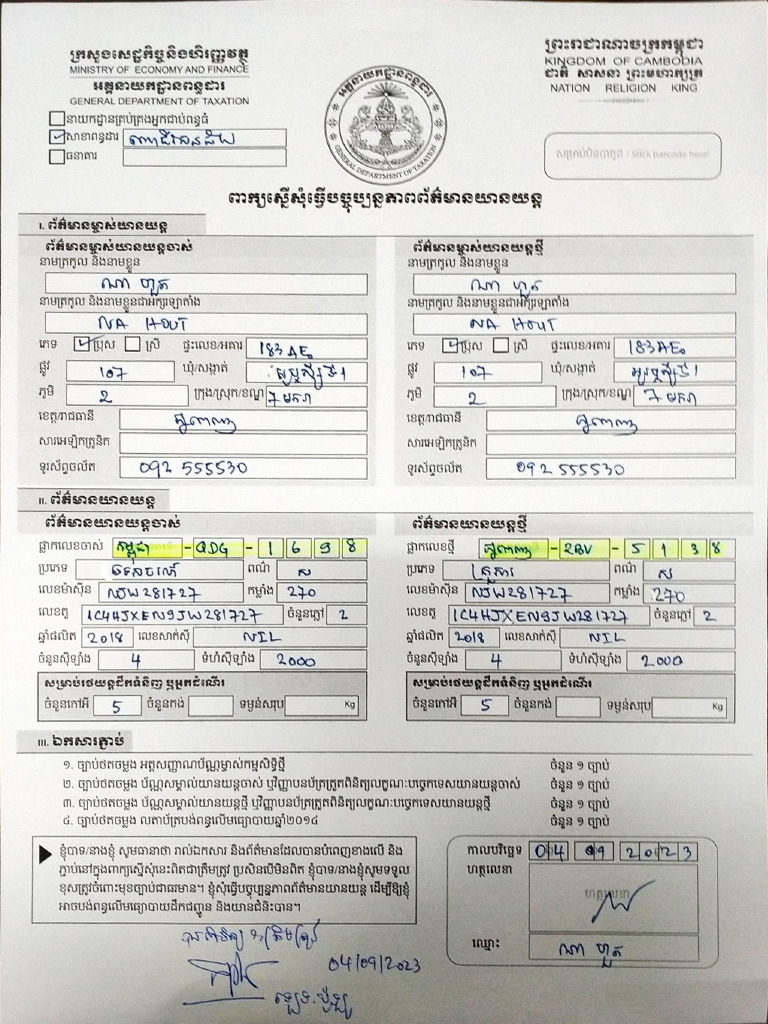 ក្រសួងសេដ្ឋកិច្ចនិងហិរញ្ញវត្ថុ
MINISTRY OF ECONOMY AND FINANCE
អគ្គនាយកដ្ឋានពន្ធដារ
GENERAL DEPARTMENT OF TAXATION
ព្រះរាជាណាចក្រកម្ពុជា
KINGDOM OF CAMBODIA
ជាតិ សាសនា ព្រះមហាក្សត្រ
NATION RELIGION KING
អគ្គនាយកដ្ឋានពន្ធដារ
GENERAL DEPARTMENT OF TAXATION
នាយកដ្ឋានគ្រប់គ្រងអ្នកជាប់ពន្ធធំ
សាខាពន្ធដារ
ធនាគារ
សម្រាប់បិទបាកូដ / Stick barcode here!
ពាក្យស្នើសុំធ្វើបច្ចុប្បន្នភាពព័ត៌មានយានយន្ត
I. ព័ត៌មានម្ចាស់យានយន្ត
ព័ត៌មានម្ចាស់យានយន្តចាស់ ព័ត៌មានម្ចាស់យានយន្តថ្មី
នាមត្រកូល និងនាមខ្លួន នាមត្រកូល និងនាមខ្លួន
ណា ហួត ណា ហួត
នាមត្រកូល និងនាមខ្លួនជាអក្សរឡាតាំង នាមត្រកូល និងនាមខ្លួនជាអក្សរឡាតាំង
NA HOUT NA HOUT
ភេទ ប្រុស ស្រី ផ្ទះលេខ/អគារ 183AE0 ភេទ ប្រុស ស្រី ផ្ទះលេខ/អគារ 183AE0
ផ្លូវ 107 ឃុំ/សង្កាត់ ផ្លូវ 107 ឃុំ/សង្កាត់
ភូមិ 2 ក្រុង/ស្រុក/ខណ្ឌ 7 មករា ភូមិ 2 ក្រុង/ស្រុក/ខណ្ឌ 7 មករា
ខេត្ត/រាជធានី ភ្នំពេញ ខេត្ត/រាជធានី ភ្នំពេញ
សារអេឡិកត្រូនិក សារអេឡិកត្រូនិក
ទូរស័ព្ទចល័ត 092 555530 ទូរស័ព្ទចល័ត 092 555530
II. ព័ត៌មានយានយន្ត
ព័ត៌មានយានយន្តចាស់ ព័ត៌មានយានយន្តថ្មី
ផ្លាកលេខចាស់ កម្ពុជា - QDG - 1 6 9 8 ផ្លាកលេខថ្មី ភ្នំពេញ - 2BV - 5 1 3 8
ប្រភេទ ពណ៌ ស ប្រភេទ ពណ៌ ស
លេខម៉ាស៊ីន NJW281727 កម្លាំង 270 លេខម៉ាស៊ីន NJW281727 កម្លាំង 270
លេខតួ 1C4HJXEN9JW281727 ចំនួនភ្លៅ 2 លេខតួ 1C4HJXEN9JW281727 ចំនួនភ្លៅ 2
ឆ្នាំផលិត 2018 លេខសាក់ស៊ី NIL ឆ្នាំផលិត 2018 លេខសាក់ស៊ី NIL
ចំនួនស៊ីឡាំង 4 ទំហំស៊ីឡាំង 2000 ចំនួនស៊ីឡាំង 4 ទំហំស៊ីឡាំង 2000
សម្រាប់រថយន្តដឹកទំនិញ ឬអ្នកដំណើរ សម្រាប់រថយន្តដឹកទំនិញ ឬអ្នកដំណើរ
ចំនួនកៅអី 5 ចំនួនកង់ ទម្ងន់សរុប Kg ចំនួនកៅអី 5 ចំនួនកង់ ទម្ងន់សរុប Kg
III. ឯកសារភ្ជាប់
១. ច្បាប់ថតចម្លង អត្តសញ្ញាណប័ណ្ណម្ចាស់កម្មសិទ្ធិថ្មី ចំនួន ១ ច្បាប់
២. ច្បាប់ថតចម្លង ប័ណ្ណសម្គាល់យានយន្តចាស់ ឬវិញ្ញាបនប័ត្រត្រួតពិនិត្យលក្ខណៈបច្ចេកទេសយានយន្តចាស់ ចំនួន ១ ច្បាប់
៣. ច្បាប់ថតចម្លង ប័ណ្ណសម្គាល់យានយន្តថ្មី ឬវិញ្ញាបនប័ត្រត្រួតពិនិត្យលក្ខណៈបច្ចេកទេសយានយន្តថ្មី ចំនួន ១ ច្បាប់
៤. ច្បាប់ថតចម្លង លតាប័ត្របង់ពន្ធលើមធ្យោបាយឆ្នាំ២០១៤ ចំនួន ១ ច្បាប់
ខ្ញុំបាទ/នាងខ្ញុំ សូមធានាថា រាល់ឯកសារ និងព័ត៌មានដែលបានបំពេញខាងលើ និង
ភ្ជាប់នៅក្នុងពាក្យស្នើសុំនេះពិតជាត្រឹមត្រូវ ប្រសិនបើមិនពិត ខ្ញុំបាទ/នាងខ្ញុំសូមទទួល
ខុសត្រូវចំពោះមុខច្បាប់ជាធរមាន។ ខ្ញុំសុំធ្វើបច្ចុប្បន្នភាពព័ត៌មានយានយន្ត ដើម្បីឱ្យខ្ញុំ
អាចបង់ពន្ធលើមធ្យោបាយដឹកជញ្ជូន និងយានជំនិះបាន។
កាលបរិច្ឆេទ 04 09 2023
ហត្ថលេខា
ហត្ថលេខា
ឈ្មោះ ណា ហួត
04/09/2023